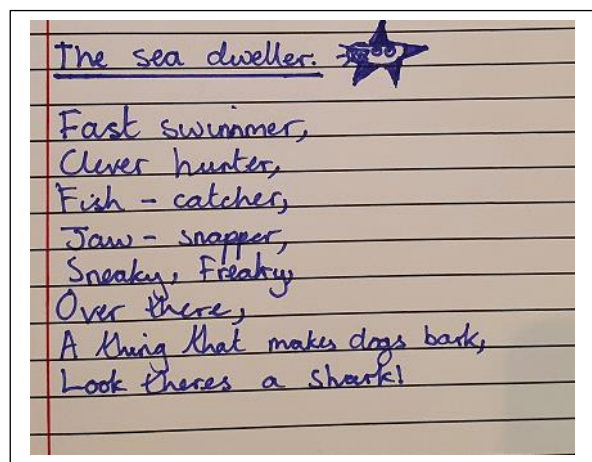 The sea dweller.
Fast swimmer,
Clever hunter,
Fish - catcher,
Jaw - snapper,
Sneaky, Freaky,
Over there,
A thing that makes dogs bark,
Look theres a shark!